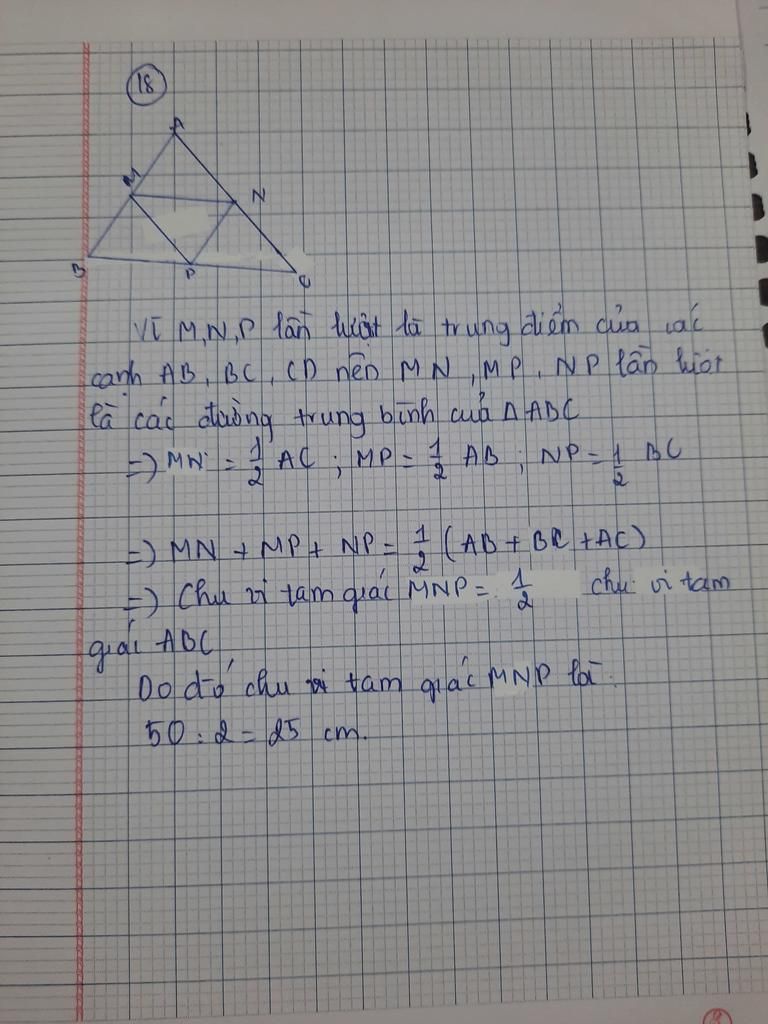 18
A
M
N
B
P
C
Vì M, N, P lần lượt là trung điểm của các
cạnh AB, BC, CD nên MN, MP, NP lần lượt
là các đường trung bình của Δ ABC
=> MN = 1/2 AC ; MP = 1/2 AB ; NP = 1/2 BC
=> MN + MP + NP = 1/2 (AB + BC + AC)
=> Chu vi tam giác MNP = 1/2 chu vi tam
giác ABC
Do đó chu vi tam giác MNP là:
50 : 2 = 25 cm.